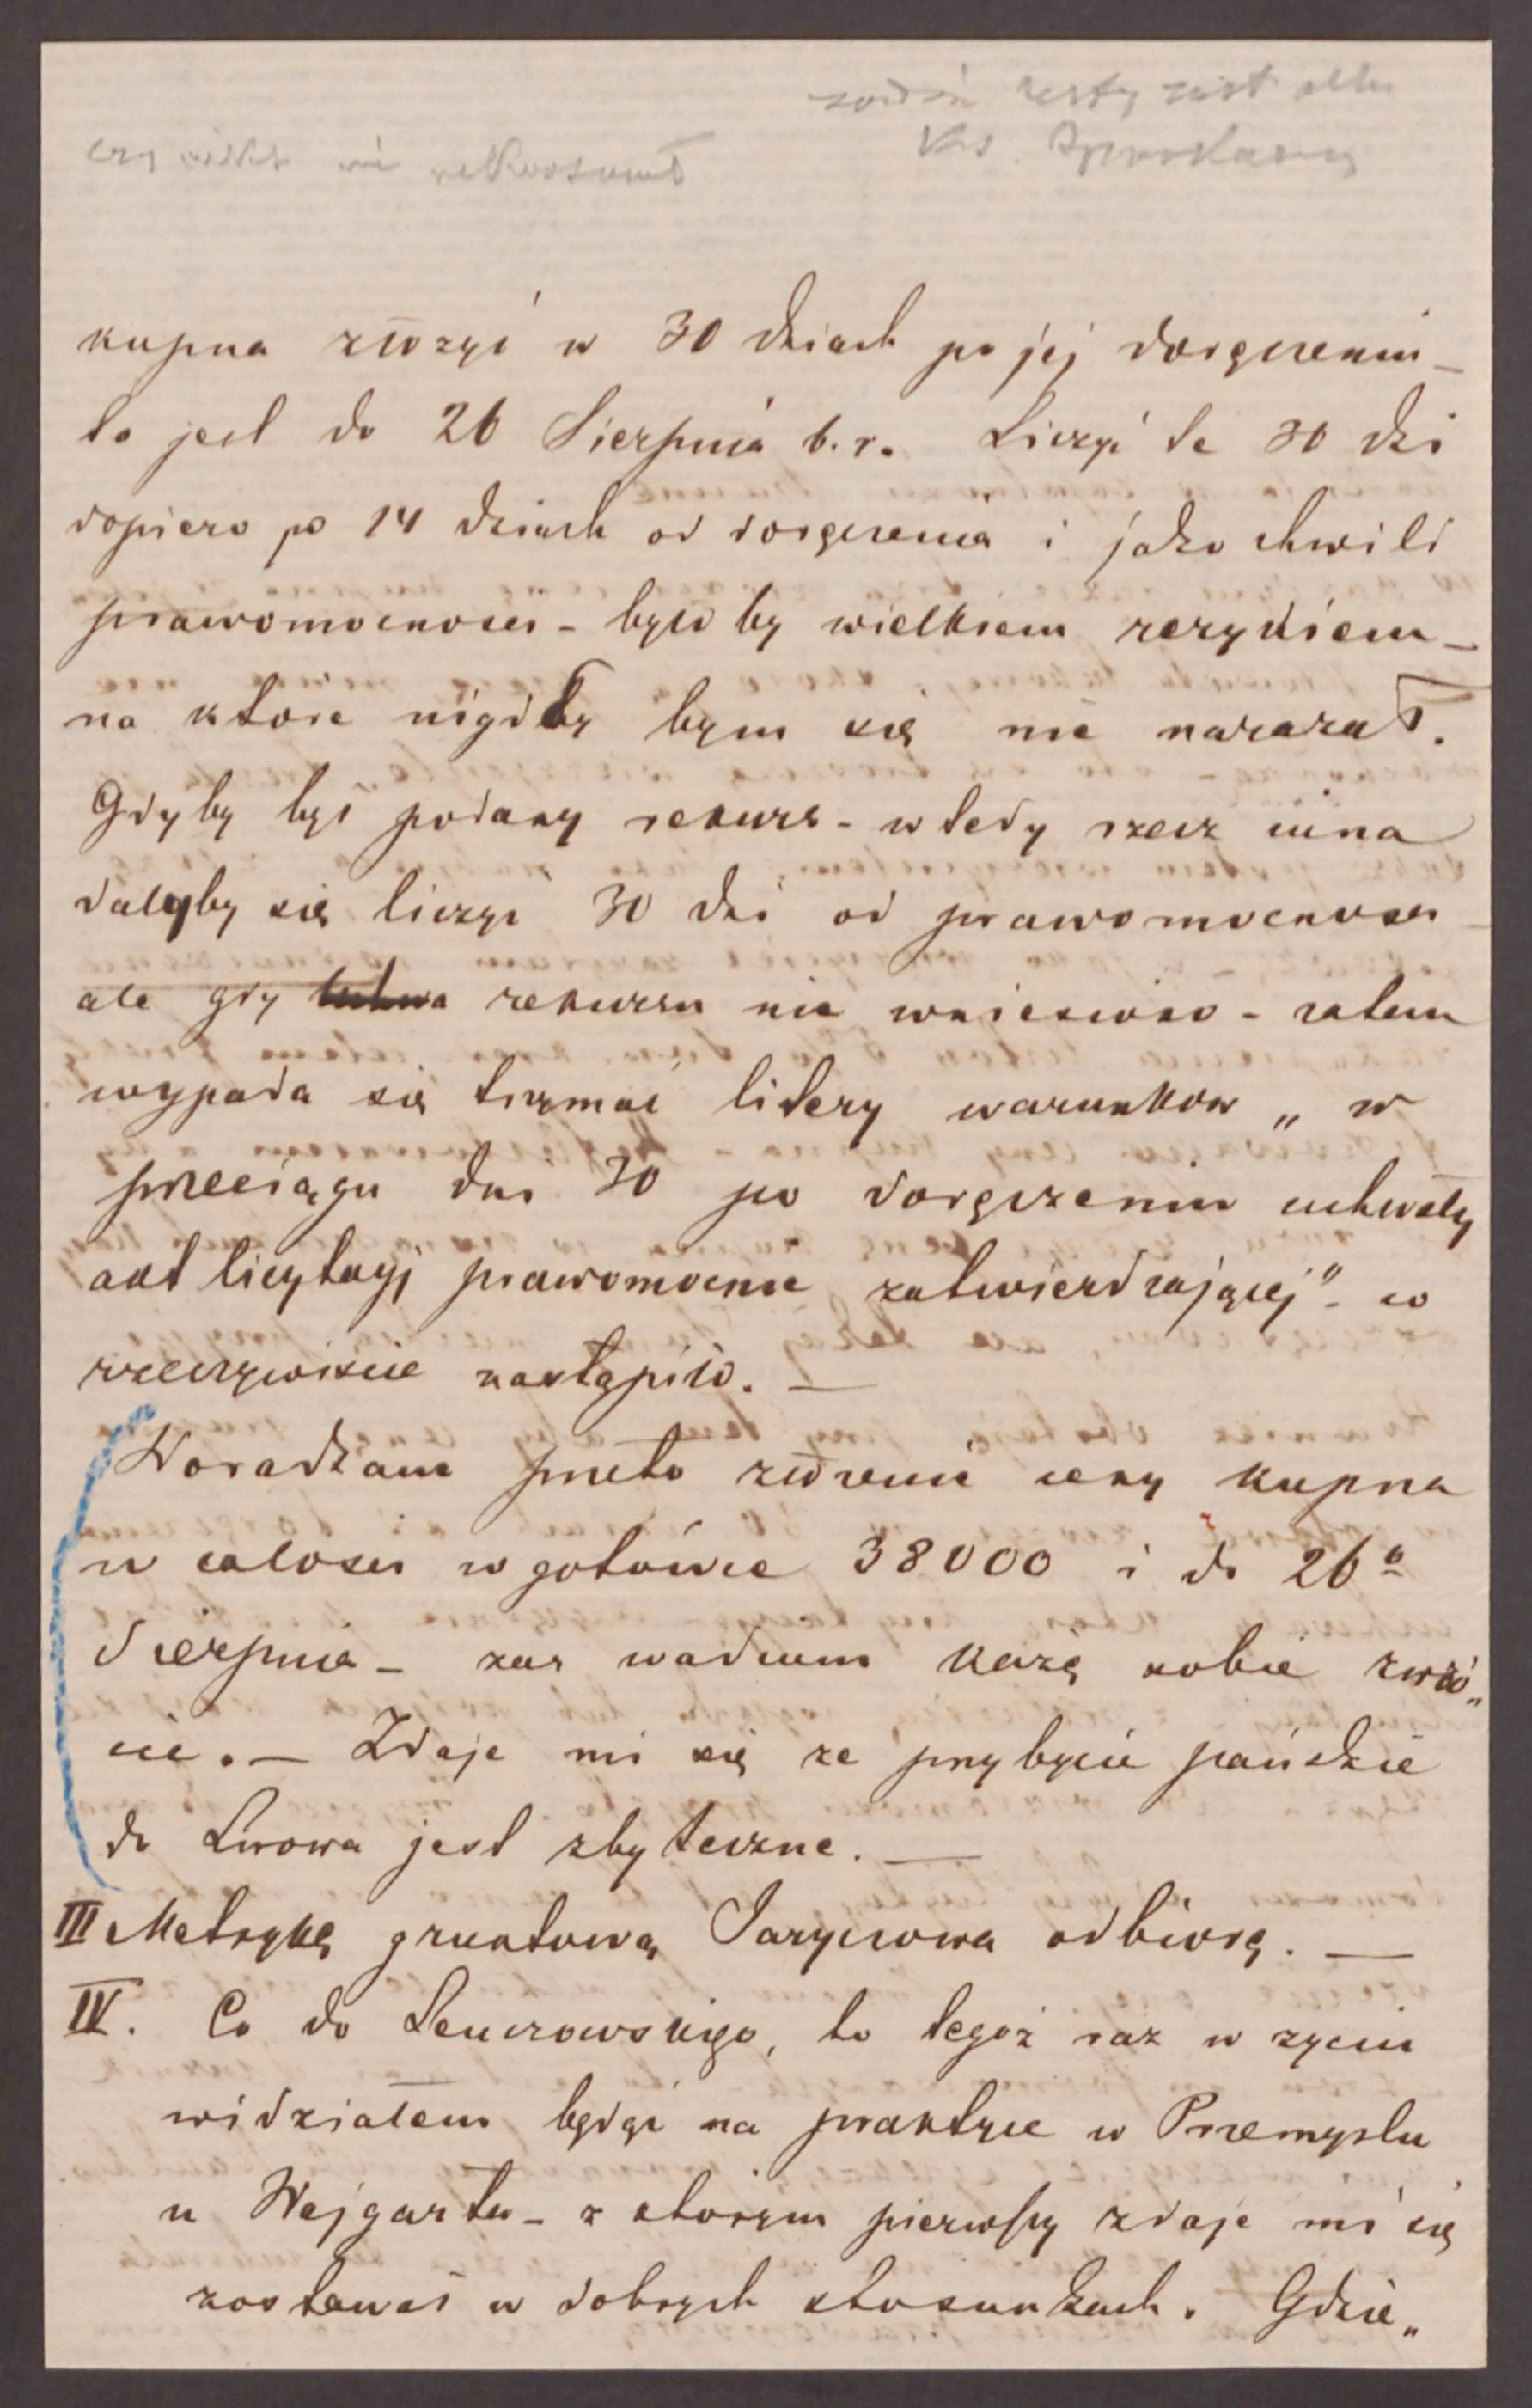 czy nikt nie rekurował
Ks.
kupna złożyć w 30 dniach po jej doręczeniu –
to jest do 26 Sierpnia b.r. Liczyć te 30 dni
dopiero po 14 dniach od doręczenia i jako chwili
prawomocności – było by wielkiem ryzykiem –
na które nigdy bym się nie narażał.
Gdyby był podany rekurs – wtedy rzecz inna
dałyby się liczyć 30 dni od prawomocności –
ale gdy rekursu nie wniesiono – zatem
wypada się trzymać litery warunków „ w
przeciągu dni 30 po doręczeniu uchwały
akt licytacyj prawomocnie zatwierdzającej" – co
rzeczywiście nastąpiło. —
Doradzam przeto złożenie ceny kupna
w całości w gotówce 38000 i do 26º
Sierpnia – zaś wadium każę sobie zwró„
cić. — Zdaje mi się ze przybycie pańskie
do Lwowa jest zbyteczne. —
III Metrykę gruntową Jaryczowa odbiorę. —
IV. Co do to tegoż raz w zyciu
widziałem będąc na praktyce w Przemyslu
u Wajgarta – z którym pierwszy zdaje mi się
zostawał w dobrych stosunkach. Gdzie„